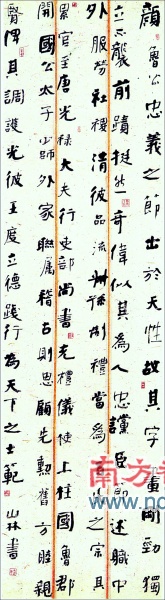 顏魯公忠義之節出於天性故其字畫剛勁獨
立不襲前蹟挺然奇偉似其為人忠謹臣節述職中
外服勞社稷清彼品流禮當為之宗具
累官至唐光祿大夫行吏部尚書充禮儀使上柱國魯郡
開國公太子少師外家聯屬稽古則思顧先勳舊方睦親
賢俾其調護光彼王度立德踐行為天下之士範 山林書
南方